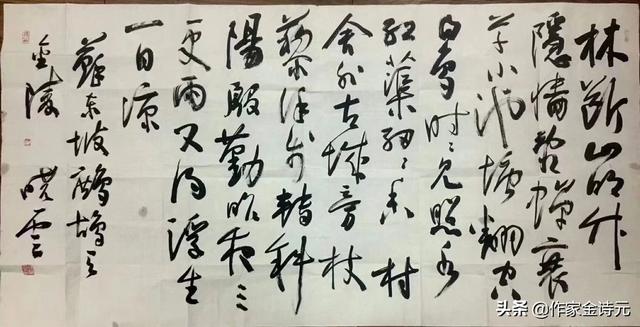 林断山明竹
隐墙乱蝉衰
草小池塘翻空
白鸟时々见照水
红蕖细々香村
舍外古城旁杖
藜徐步转斜
陽殷勤昨夜三
更雨又得浮生
一日凉
蘇东坡鹧鸪天
金陵 晓云
头条 @作家金诗元